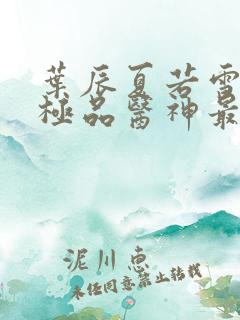 葉辰夏若雪
極品醫神最
泥川惠
未经同意禁止转载